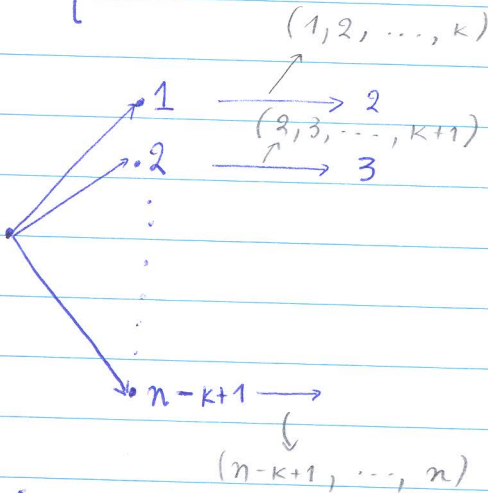 (1, 2, ..., k)
1 → 2
(2, 3, ..., k+1)
2 → 3
n - k+1 →
(n-k+1, ..., n)